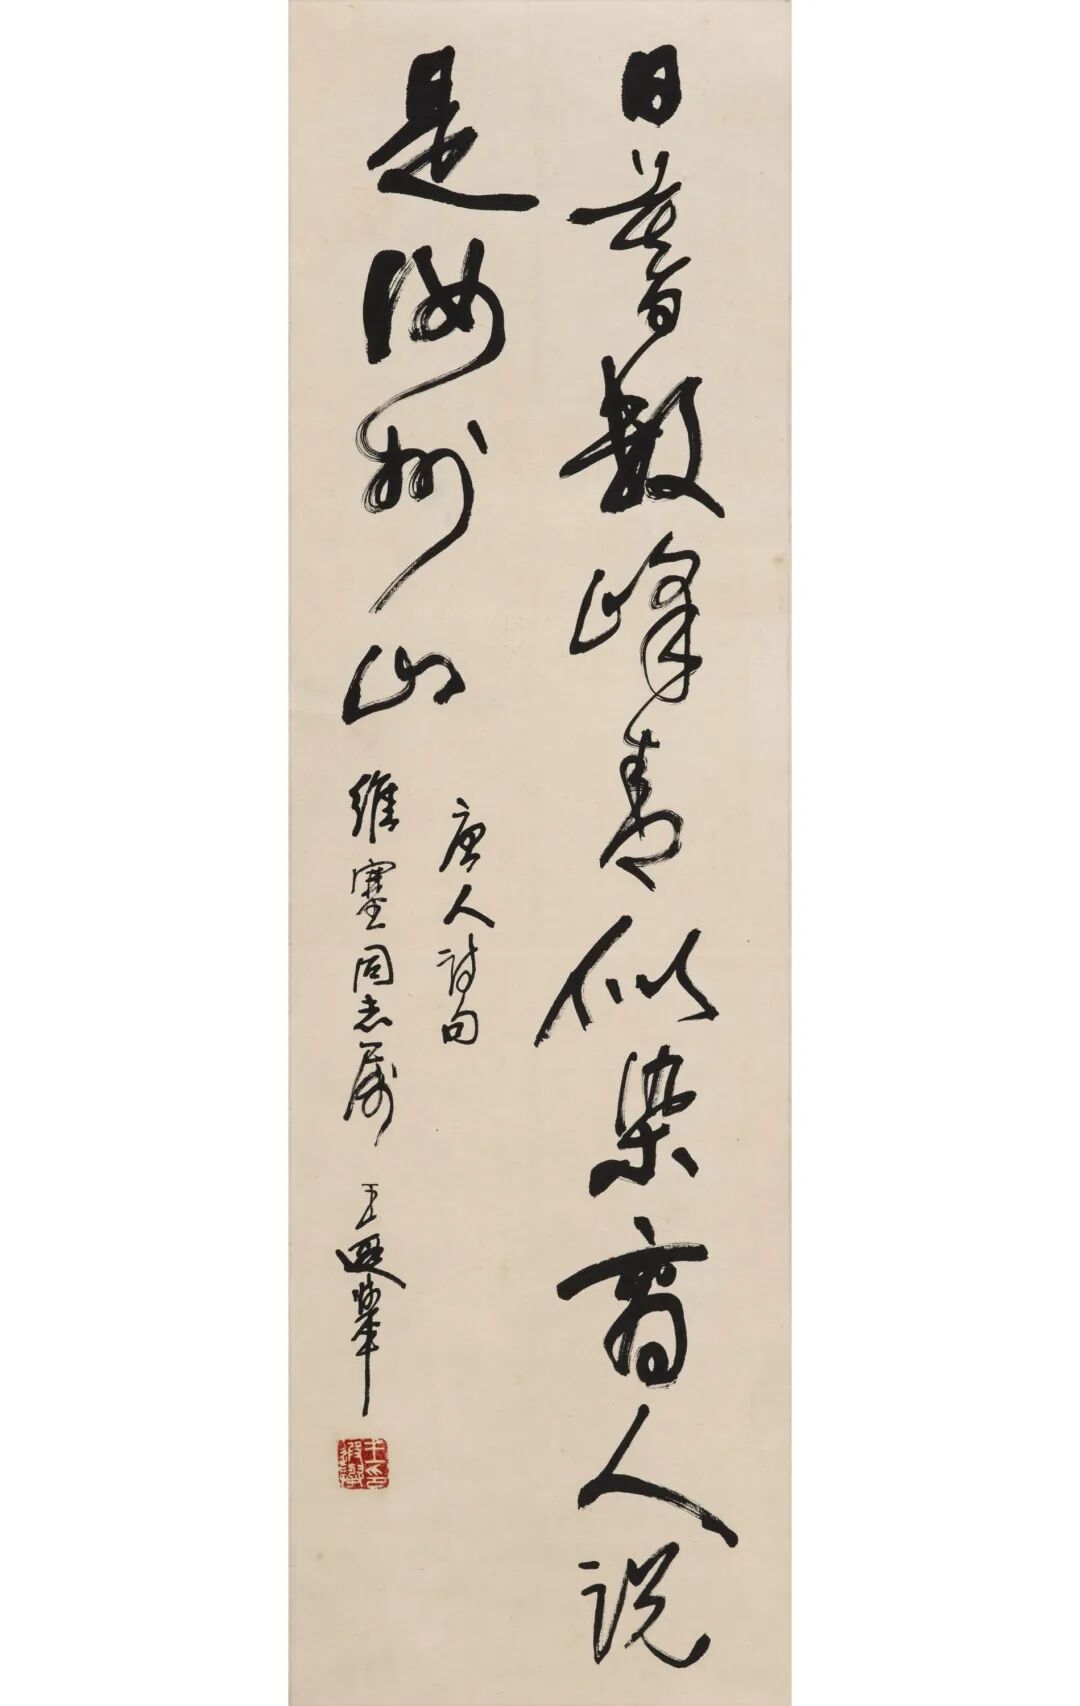 日暮数峰青似染商人说
是汝州山
唐人诗句
维塞同志属 王遐举
王遐举印